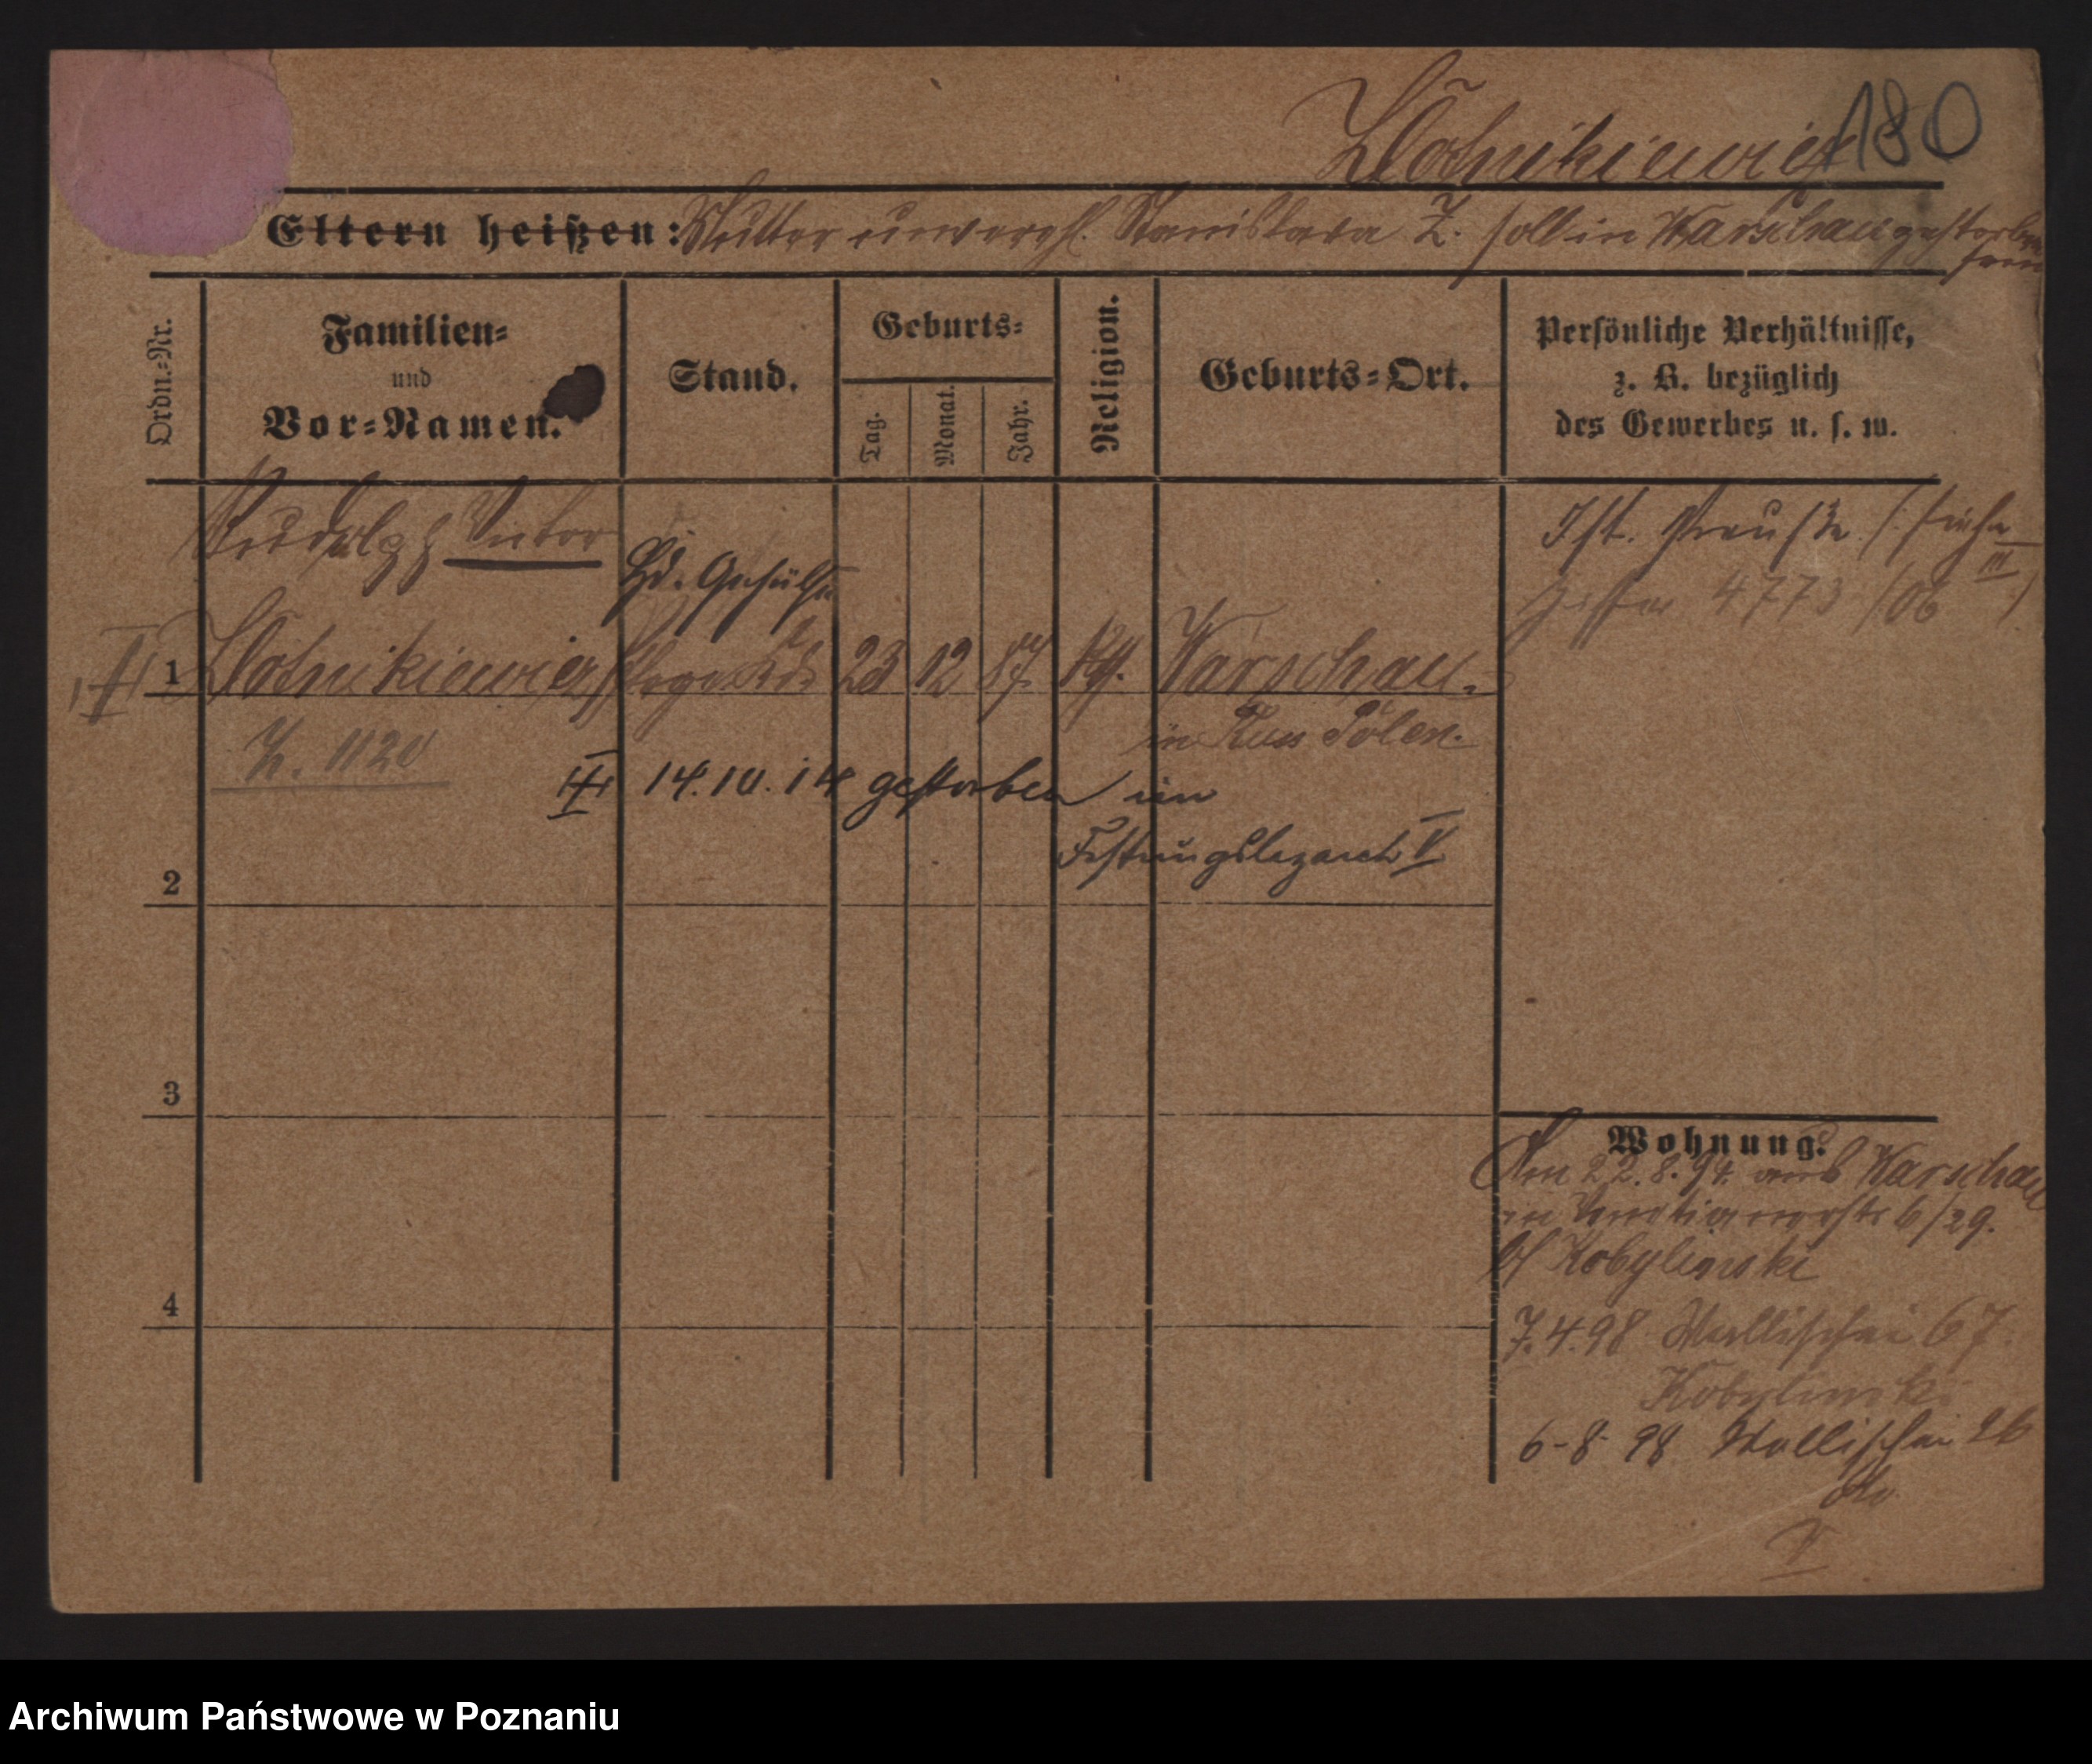 Zlotnikiewicz 180
Eltern heißen: Mutter unverehl. Stanislava Z. soll in Warschau gestorben
sein
Ordn.-Nr.
Familien-
und
Vor-Namen.
Stand.
Geburts-
Tag.
Monat.
Jahr.
Religion.
Geburts-Ort.
Persönliche Verhältnisse,
z. B. bezüglich
des Gewerbes u. s. w.
Rudolph Victor
Hd. Gehülfe
Ist. Preuße
4773/06
III
1 Zlotnikiewicz 23 12 87 Warschau.
in Russ Polen.
Z. 1120
14.10.14 gestorben im
Festungslazareth V
2
3
4
Wohnung.
Am 22.8.94. aus Warschau
in Venetianerstr 6/29.
b/ Kobylinski
7.4.98 Wallischei 67.
Kobylinski
6-8-98 Wallischei 26
do
V
Archiwum Państwowe w Poznaniu